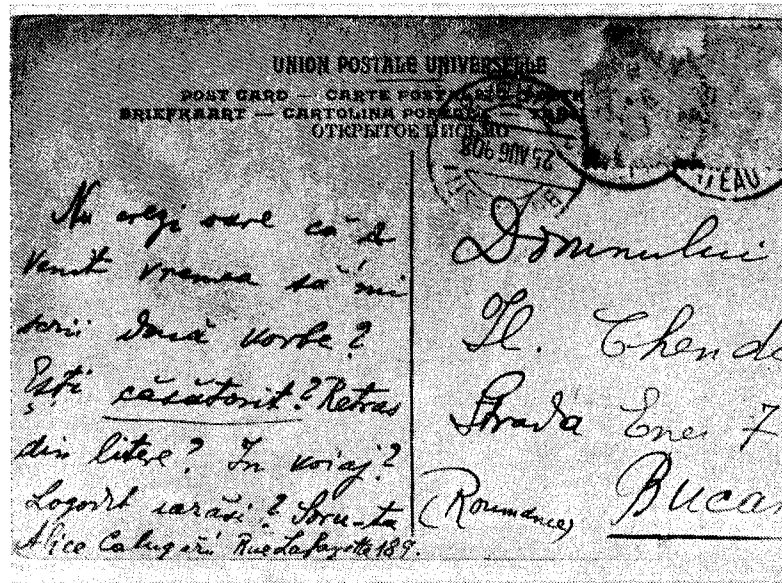 UNION POSTALE UNIVERSELLE
POST CARD — CARTE POSTALE
BRIEFKAART — CARTOLINA POSTALE
ОТКРЫТОЕ ПИСЬМО
25 AUG 908
EAU
Nu crezi oare că a
venit vremea să 'mi
scrii două vorbe?
Ești căsătorit? Retras
din litere? In voiaj?
Logodit iarăși? Soru-ta
Alice Calugări Rue Lafayette 189.
Domnului
Il. Chend
Strada Enei 7
(Roumanie) Bucar